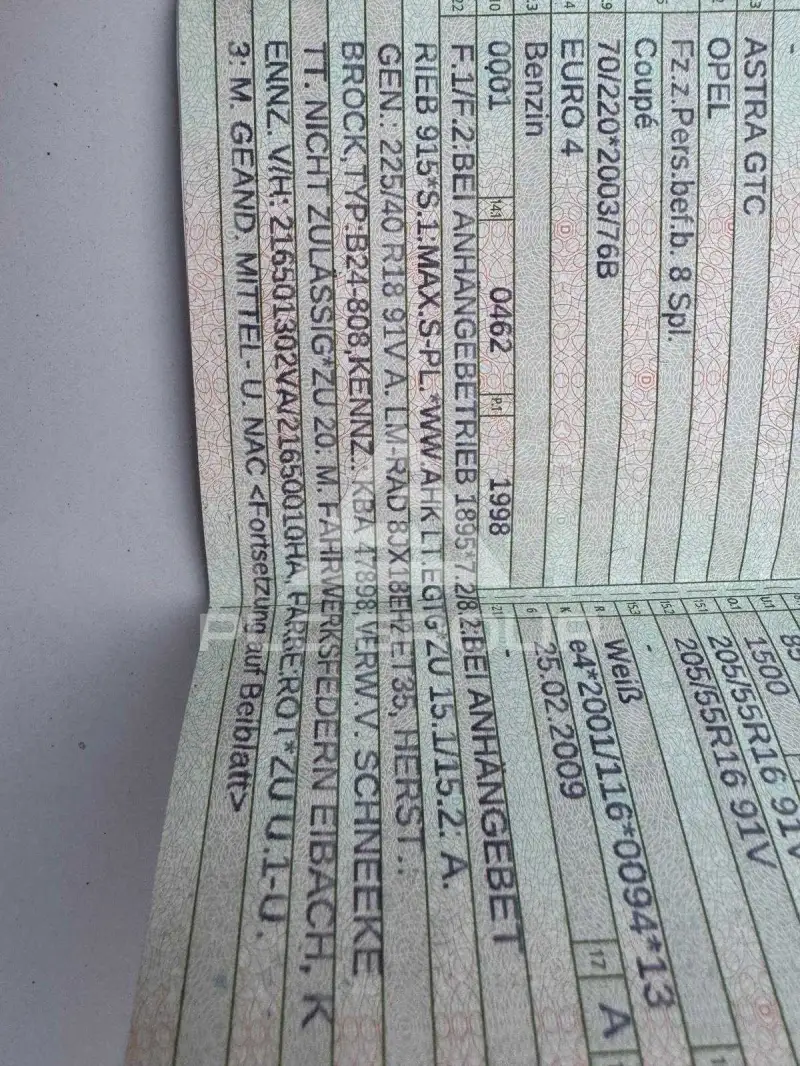 -
ASTRA GTC
OPEL
Fz.z.Pers.bef.b. 8 Spl.
Coupé
70/220*2003/76B
EURO 4
Benzin
10 0001 14.1 0462 P.1 1998
85
U.1 1500
O.1 205/55R16 91V
15.1 205/55R16 91V
15.2
15.3 -
R Weiß
K e4*2001/116*0094*13
6 25.02.2009 17 A
21 -
22 F.1/F.2:BEI ANHÄNGEBETRIEB 1895*7.2/8.2:BEI ANHÄNGEBET
RIEB 915*S.1:MAX.S-PL.*WW.AHK LT.EGTG*ZU 15.1/15.2: A.
GEN.: 225/40 R18 91V A. LM-RAD 8JX18EH2 ET35, HERST.:
BROCK,TYP:B24-808,KENNZ.: KBA 47898,VERW.V. SCHNEEKE
TT. NICHT ZULÄSSIG*ZU 20: M. FAHRWERKSFEDERN EIBACH, K
ENNZ. V/H: 216501302VA/21650010HA, FARBE ROT*ZU U.1-U.
3: M. GEÄND. MITTEL- U. NAC <Fortsetzung auf Beiblatt>